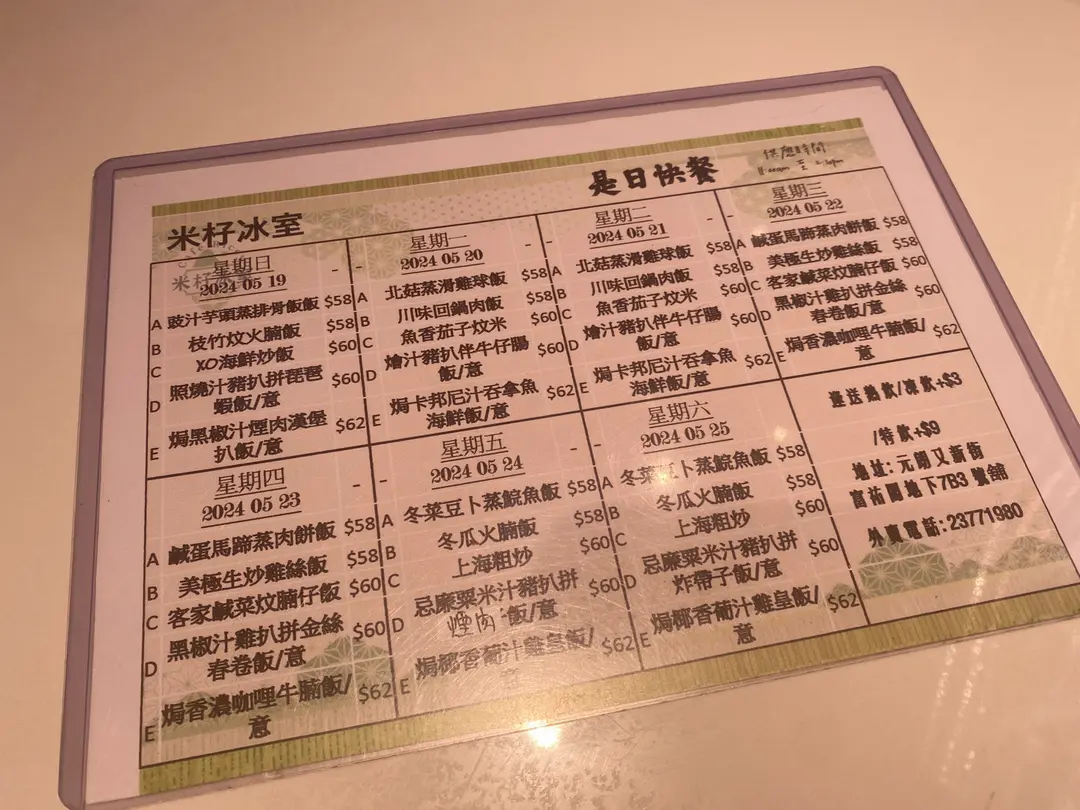 米籽冰室
是日快餐
供應時間
米籽
星期日
2024 05 19
A 豉汁芋頭蒸排骨飯飯 $58
B 枝竹炆火腩飯 $58
C XO海鮮炒飯 $60
D 照燒汁豬扒拼琵琶
蝦飯/意 $60
E 焗黑椒汁煙肉漢堡
扒飯/意 $62
星期一
2024 05 20
A 北菇蒸滑雞球飯 $58
B 川味回鍋肉飯 $58
C 魚香茄子炆米 $60
D 燴汁豬扒伴牛仔腸
飯/意 $60
E 焗卡邦尼汁吞拿魚
海鮮飯/意 $62
星期二
2024 05 21
A 北菇蒸滑雞球飯 $58
B 川味回鍋肉飯 $58
C 魚香茄子炆米 $60
D 燴汁豬扒伴牛仔腸
飯/意 $60
E 焗卡邦尼汁吞拿魚
海鮮飯/意 $62
星期三
2024 05 22
A 鹹蛋馬蹄蒸肉餅飯 $58
B 美極生炒雞絲飯 $58
C 客家鹹菜炆腩仔飯 $60
D 黑椒汁雞扒拼金絲
春卷飯/意 $60
E 焗香濃咖哩牛腩飯/
意 $62
星期四
2024 05 23
A 鹹蛋馬蹄蒸肉餅飯 $58
B 美極生炒雞絲飯 $58
C 客家鹹菜炆腩仔飯 $60
D 黑椒汁雞扒拼金絲
春卷飯/意 $60
E 焗香濃咖哩牛腩飯/
意 $62
星期五
2024 05 24
A 冬菜豆卜蒸鯇魚飯 $58
B 冬瓜火腩飯 $58
C 上海粗炒 $60
D 忌廉粟米汁豬扒拼
煙肉 飯/意 $60
E 焗椰香葡汁雞皇飯/
意 $62
星期六
2024 05 25
A 冬菜豆卜蒸鯇魚飯 $58
B 冬瓜火腩飯 $58
C 上海粗炒 $60
D 忌廉粟米汁豬扒拼
炸帶子飯/意 $60
E 焗椰香葡汁雞皇飯/
意 $62
送熱飲/凍飲+$3
/特飲+$9
地址:元朗又新街
富祐閣地下7B3 號舖
外賣電話:23771980